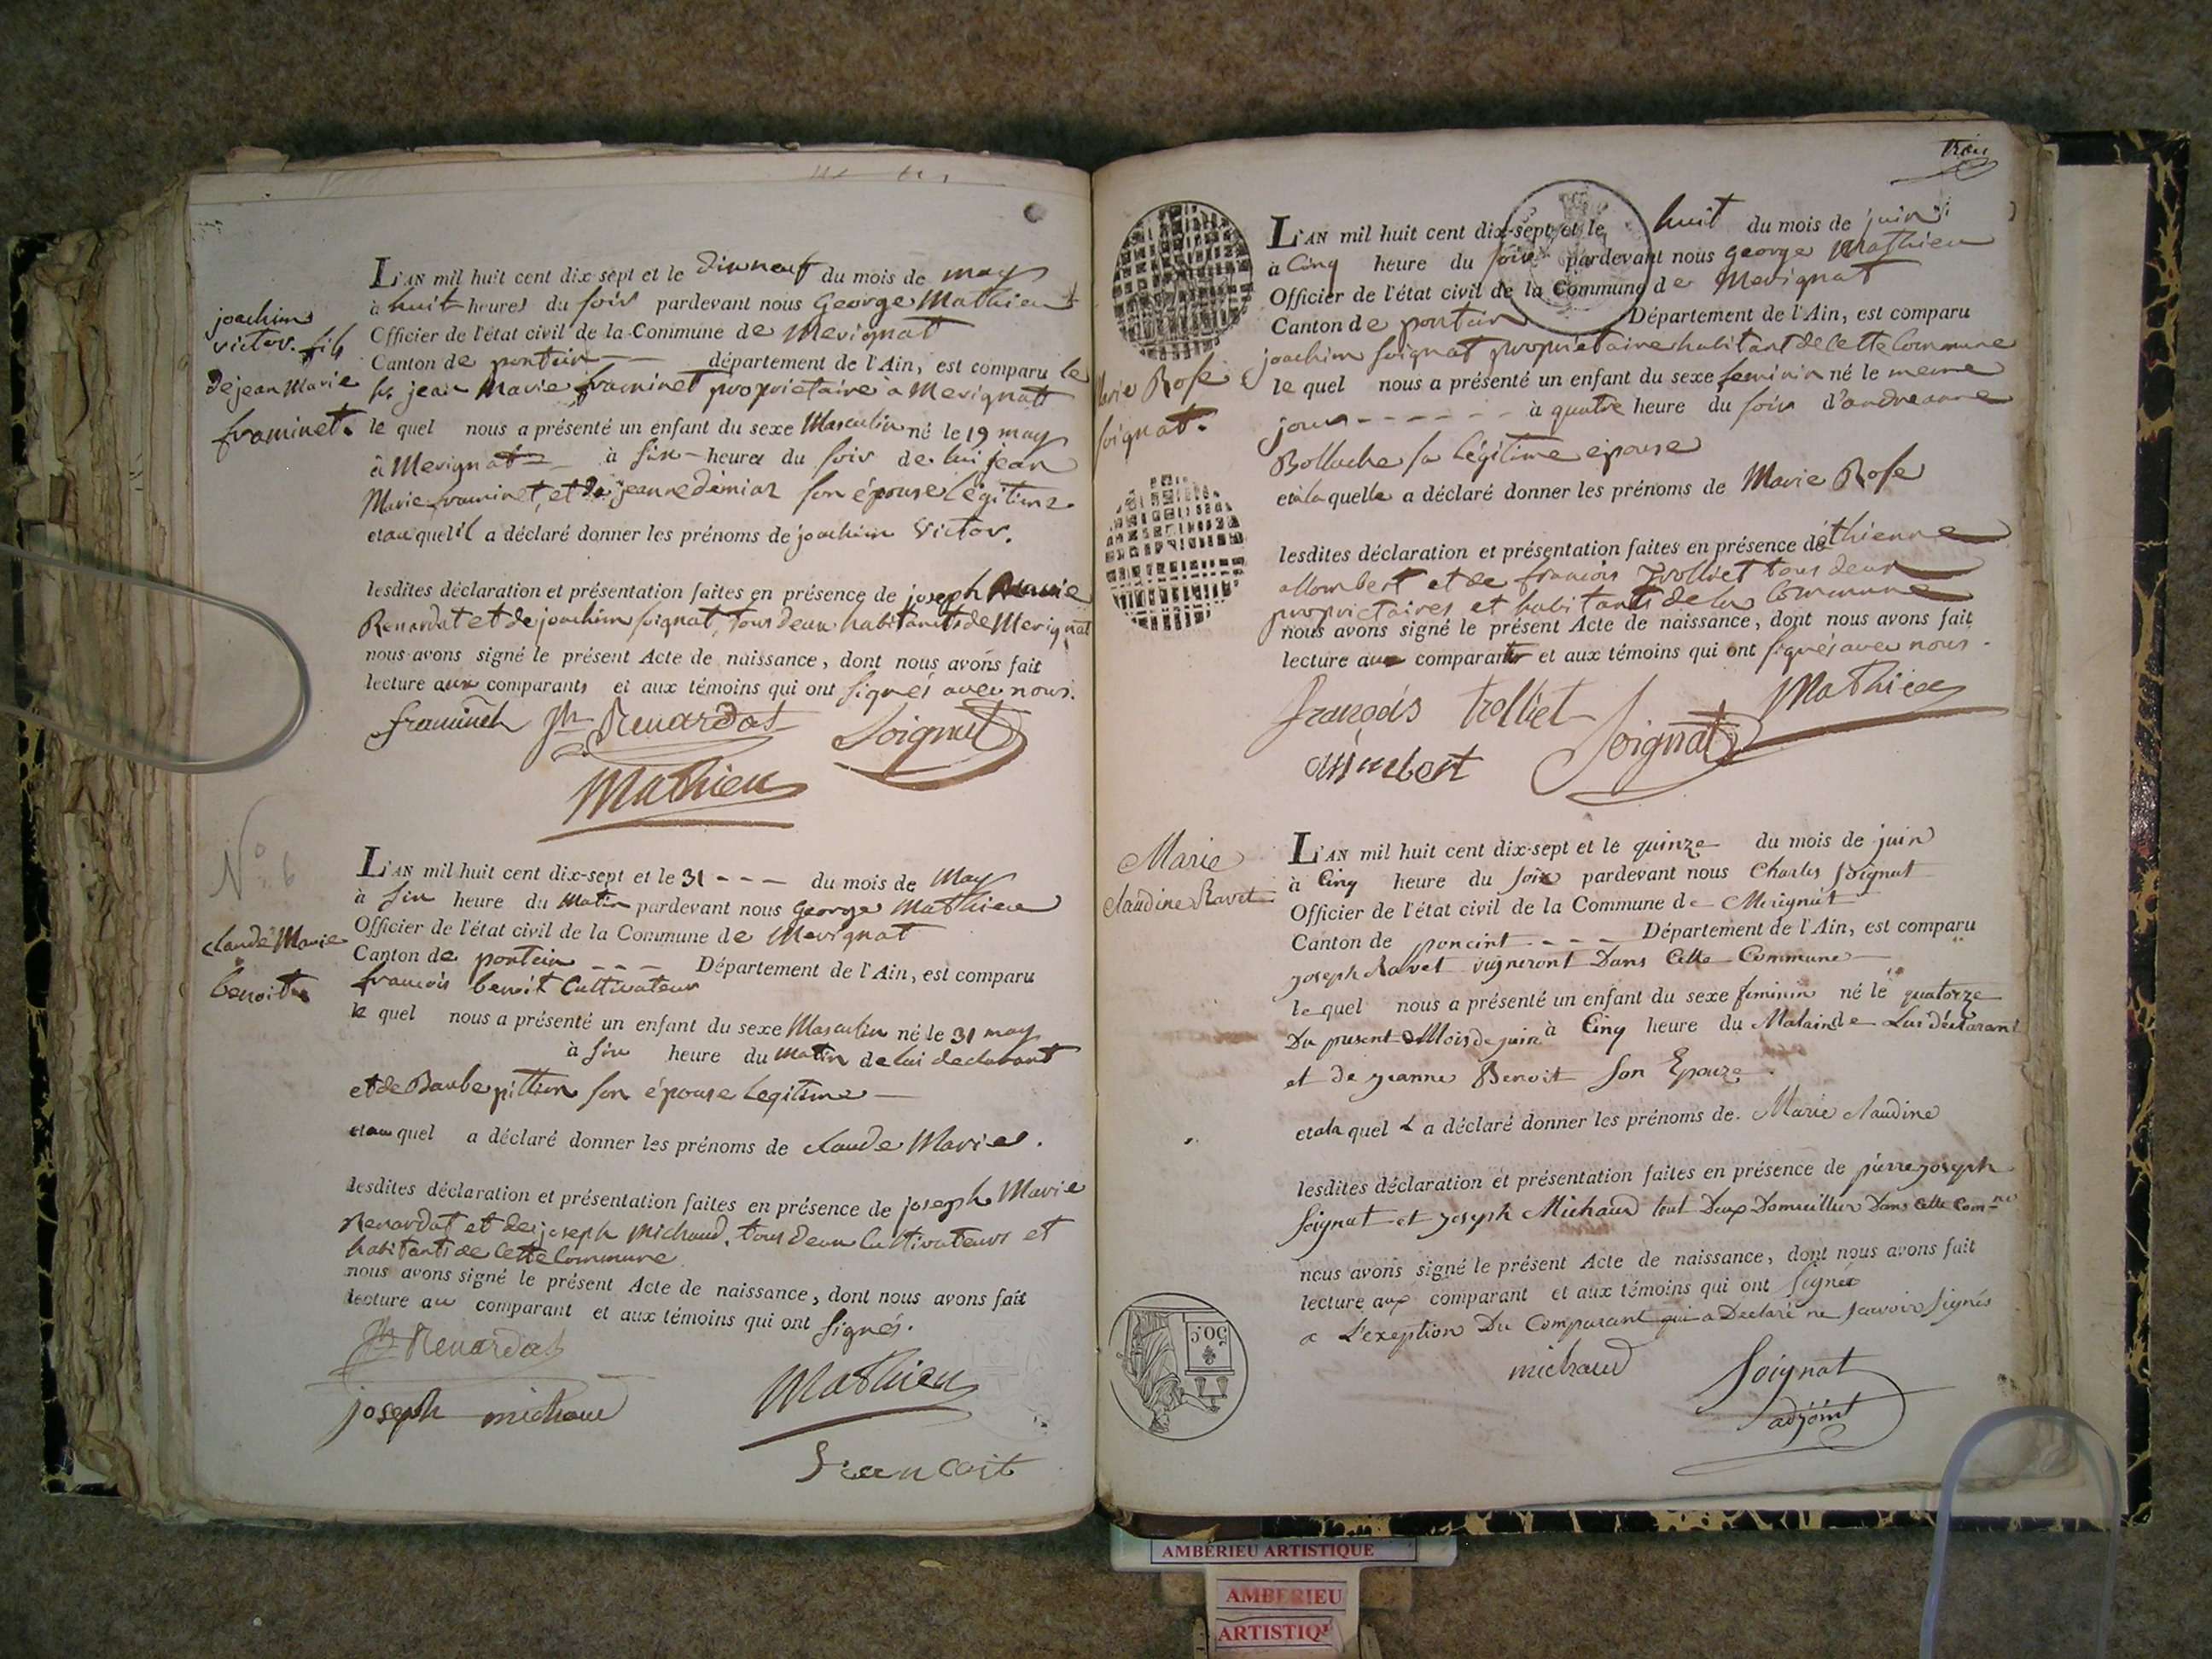 joachim
victor. fils
de jean Marie
framinet.
L'AN mil huit cent dix-sept et le dixneuf du mois de may
à huit heures du soir pardevant nous George Mathieu
Officier de l'état civil de la Commune de Merignat
Canton de pontein département de l'Ain, est comparu le
sr jean Marie framinet proprietaire a Merignat
le quel nous a présenté un enfant du sexe Masculin né le 19 may
à Merignat à six heures du soir de lui jean
Marie framinet, et de jeanne demiaz son épouse légitime
et au quel il a déclaré donner les prénoms de joachim Victor.
lesdites déclaration et présentation faites en présence de joseph Marie
Renardat et de joachim soignat, tous deux habitants de Merignat
nous avons signé le présent Acte de naissance, dont nous avons fait
lecture aux comparants et aux témoins qui ont signés avec nous.
framinet Jh Renardat Soignat
Mathieu
No 6
claude Marie
benoit
L'AN mil huit cent dix-sept et le 31 --- du mois de May
à six heure du matin pardevant nous George Mathieu
Officier de l'état civil de la Commune de Merignat
Canton de pontein --- Département de l'Ain, est comparu
francois benoit Cultivateur
le quel nous a présenté un enfant du sexe Masculin né le 31 may
à six heure du matin de lui declarant
et de Barbe pittion son épouse legitime
et au quel a déclaré donner les prénoms de claude Marie.
lesdites déclaration et présentation faites en présence de joseph Marie
Renardat et de joseph michaud, tous deux Cultivateurs et
habitants de cette Commune
nous avons signé le présent Acte de naissance, dont nous avons fait
lecture au comparant et aux témoins qui ont signés.
Jh Renardat
joseph michaud Mathieu
trois
Marie Rose
soignat.
L'AN mil huit cent dix-sept et le huit du mois de juin
à Cinq heure du soir pardevant nous George Mathieu
Officier de l'état civil de la Commune de Merignat
Canton de pontein Département de l'Ain, est comparu
joachim soignat proprietaire habitant de cette Commune
le quel nous a présenté un enfant du sexe feminin né le meme
jour ------ à quatre heure du soir d'andreanne
Bollache sa légitime epouse
et à la quelle a déclaré donner les prénoms de Marie Rose
lesdites déclaration et présentation faites en présence d'éthienne
allombert et de francois trolliet tous deux
proprietaires et habitants de la Commune
nous avons signé le présent Acte de naissance, dont nous avons fait
lecture aux comparants et aux témoins qui ont signés avec nous.
françois trolliet Soignat Mathieu
Marie
claudine Ravet
L'AN mil huit cent dix-sept et le quinze du mois de juin
à Cinq heure du soir pardevant nous Charles Soignat
Officier de l'état civil de la Commune de Merignat
Canton de poncint --- Département de l'Ain, est comparu
joseph Ravet vigneront Dans Cette Commune
le quel nous a présenté un enfant du sexe feminin né le quatorze
Du present Mois de juin à Cinq heure du Matain de Lui déclarant
et de jeanne Benoit son Epouze.
et a la quel L a déclaré donner les prénoms de Marie claudine
lesdites déclaration et présentation faites en présence de pierre joseph
Soignat et joseph Michaud tout Deux Domicillier Dans Cette Com-ne
nous avons signé le présent Acte de naissance, dont nous avons fait
lecture aux comparant et aux témoins qui ont signer
a L'exeption Du Comparant qui a Declaré ne savoir signés
michaud Soignat
adjoint
50.C
AMBERIEU ARTISTIQUE
AMBERIEU
ARTISTIQ